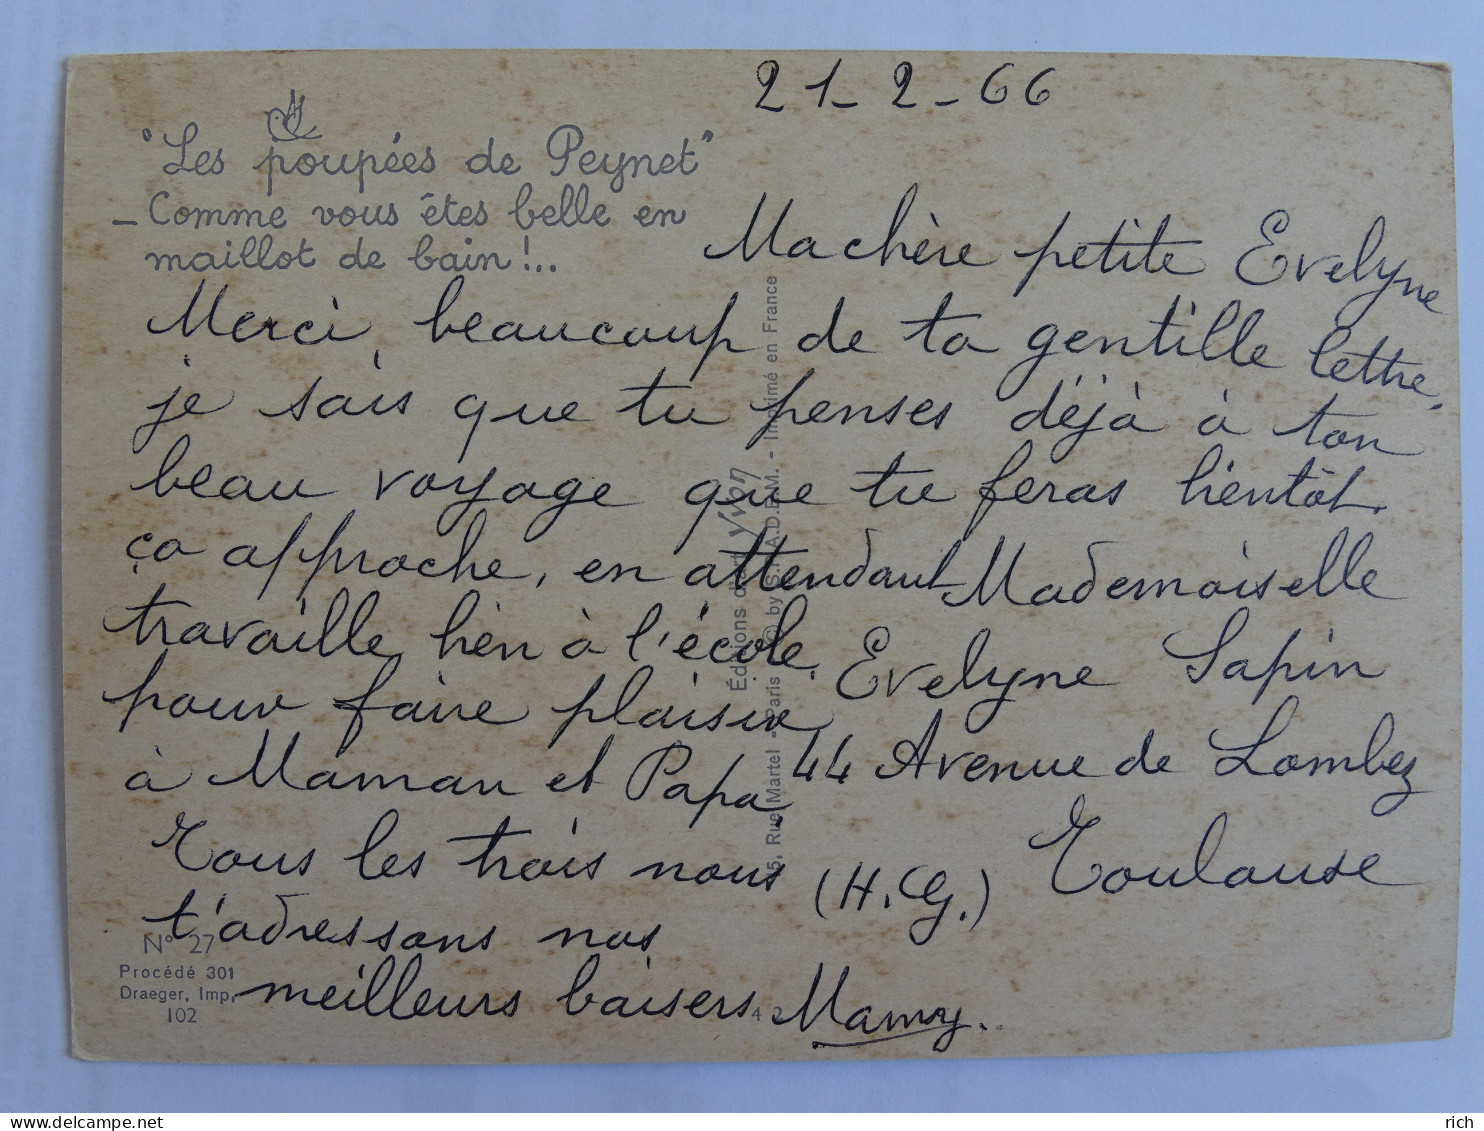 21-2-66
"Les poupées de Peynet"
- Comme vous êtes belle en
maillot de bain!..
Ma chère petite Evelyne
Merci, beaucoup de ta gentille lettre,
je sais que tu penses déjà à ton
beau voyage que tu feras bientôt.
ça approche, en attendant
travaille bien à l'école,
pour faire plaisir
à Maman et Papa,
Tous les trois nous
t'adressons nos
meilleurs baisers
Mamy.
Mademoiselle
Evelyne Sapin
44 Avenue de Lombez
Toulouse
(H.G.)
Éditions d'art Yvon
15, Rue Martel - Paris © by S.P.A.D.E.M. - Imprimé en France
N° 27
Procédé 301
Draeger, Imp.
102
4 2
rich
www.delcampe.net